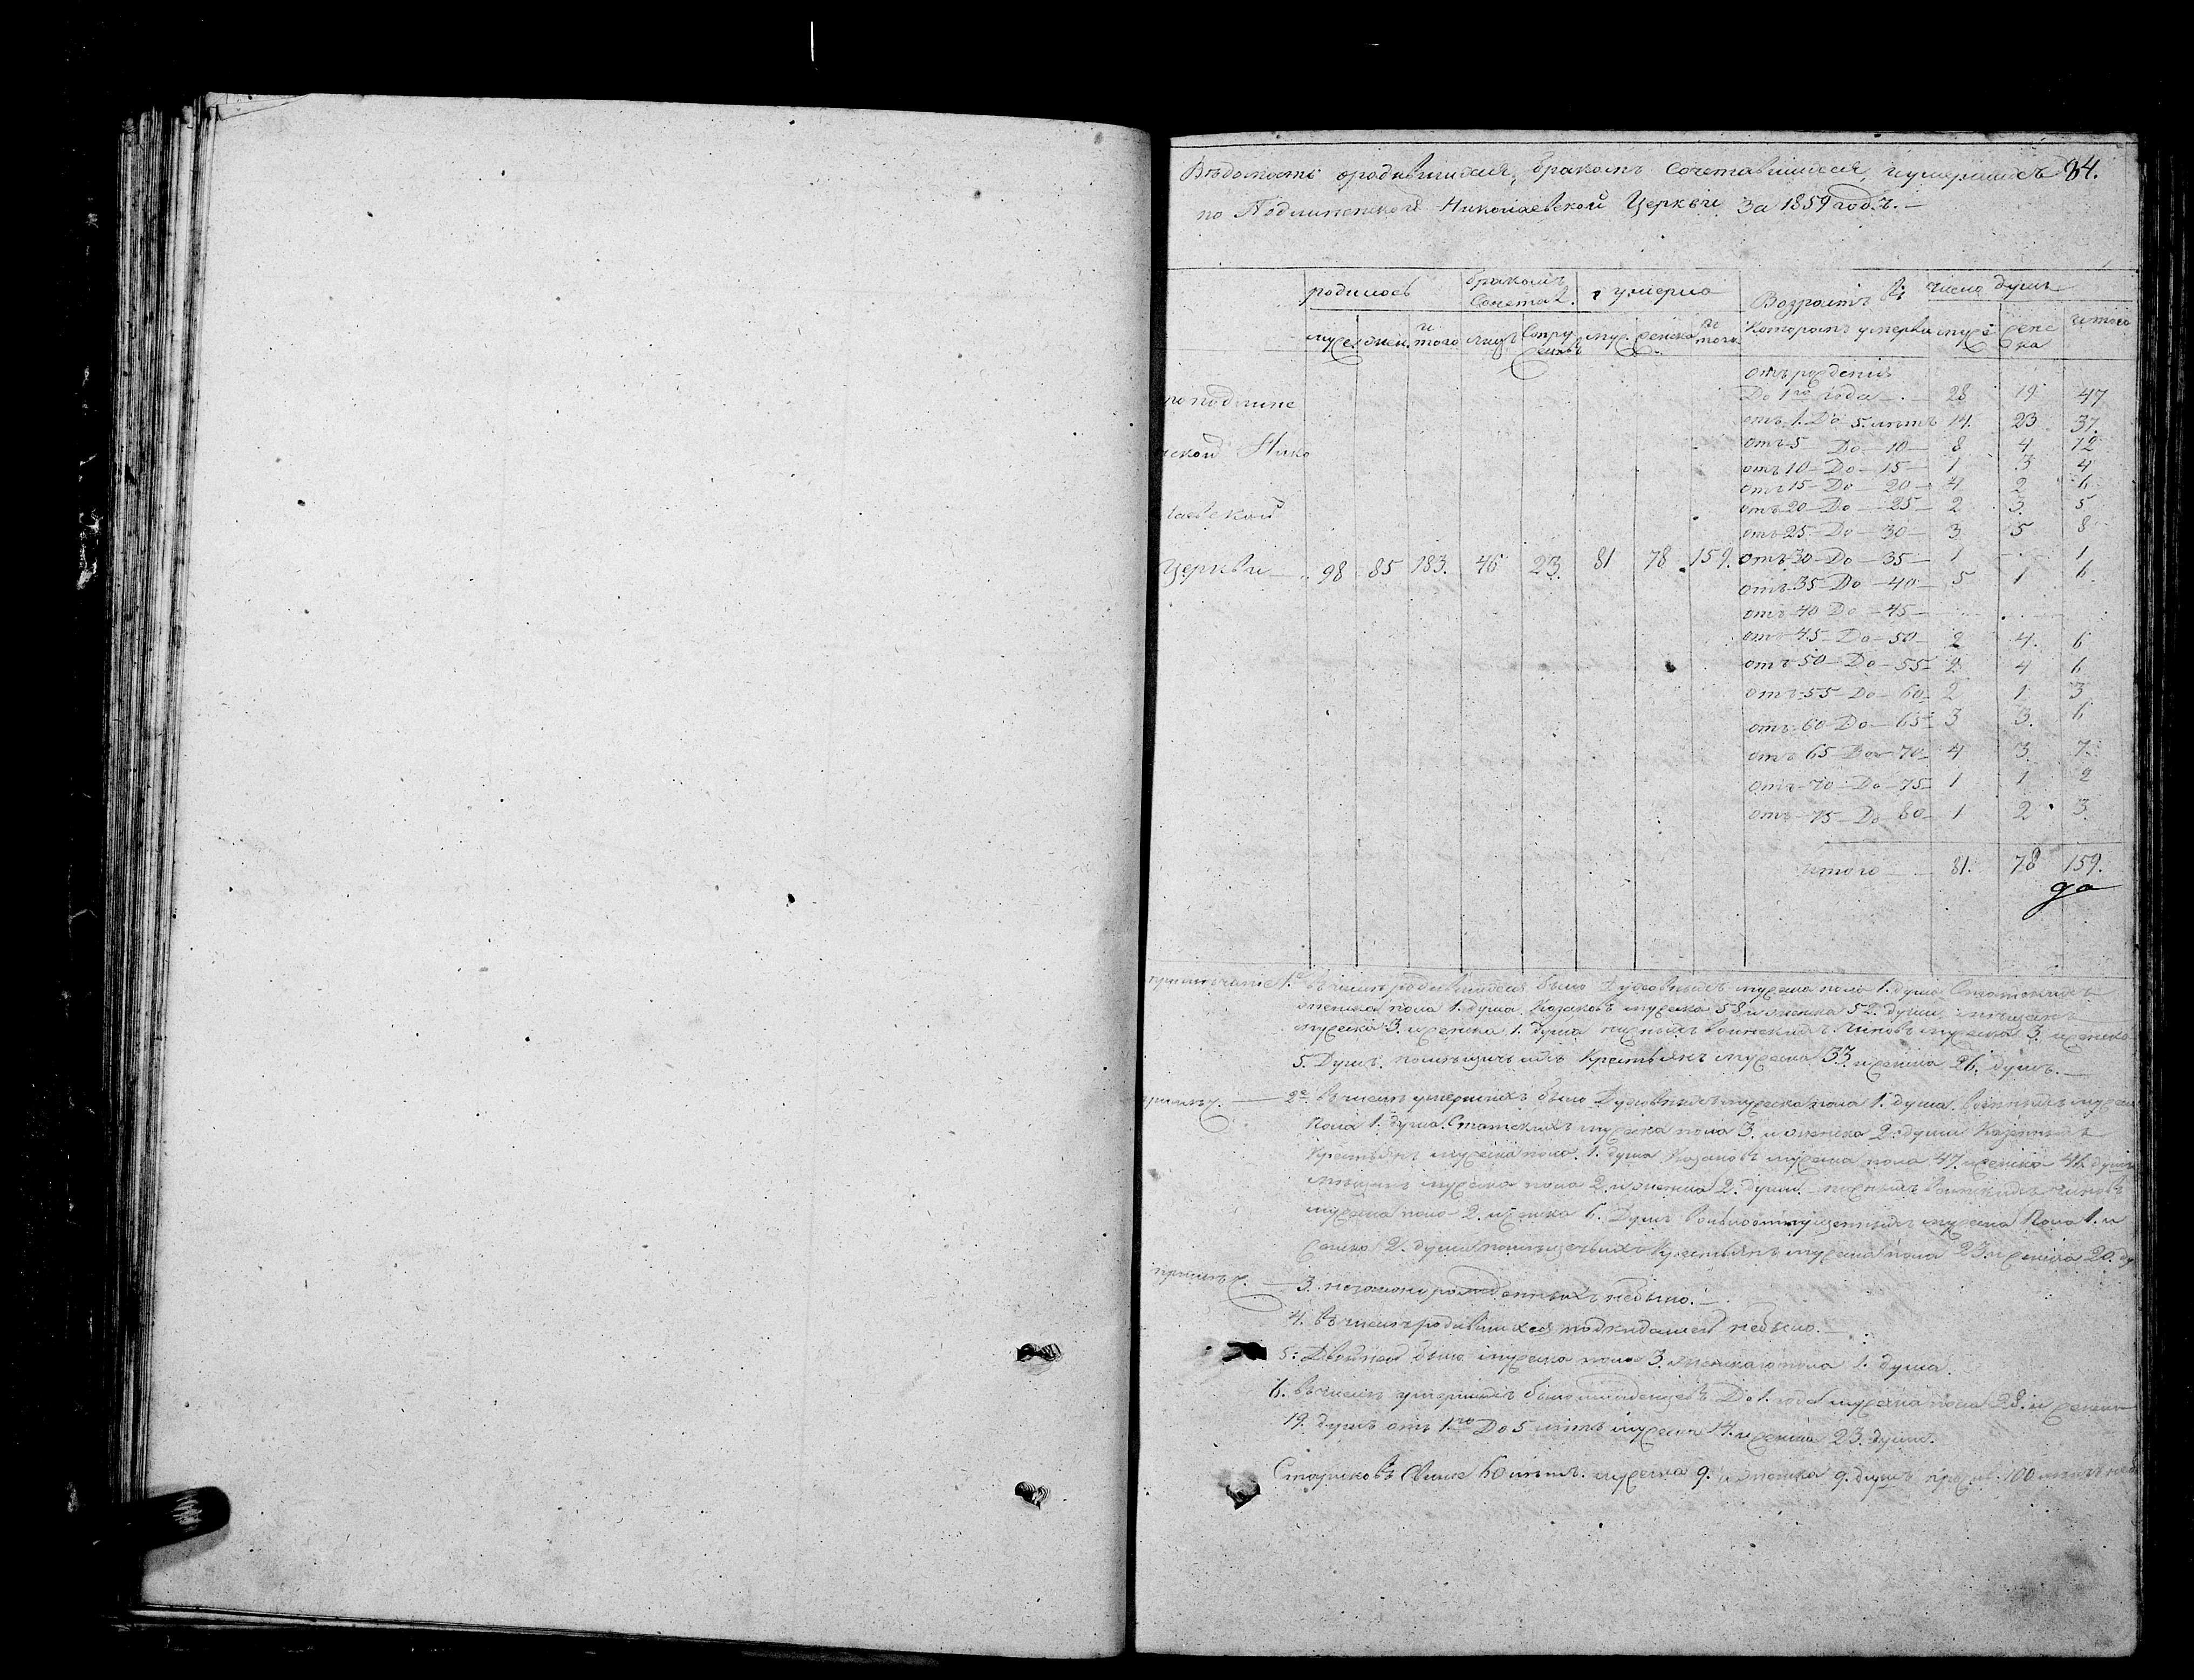 Вѣдомость о родившихся, бракомъ сочетавшихся, и умершихъ 84.
по Николаевской Церкви за 1859 годъ. —
родилось бракомъ сочетав. умерло Возрастъ въ число душъ
которомъ умерли мужс женс ка итого
муж. жен. итого лицъ супружествъ муж. женска итого
отъ рожденія
До 1го года — 28 19 47
отъ 1. До 5. лѣтъ 14. 23 37.
ской Нико отъ 5 До — 10 — 8 4 12
отъ 10 — До — 15 — 1 3 4
отъ 15 — До 20 — 4 2 6
лаевской отъ 20 — До — 25 — 2 3. 5
отъ 25 — До — 30 — 3 5 8
Церкви — 98 85 183. 46 23. 81 78 159. отъ 30 — До — 35 — 1 — 1
отъ 35 — До — 40 — 5 1 6.
отъ 40 До — 45 —
отъ 45 — До — 50 — 2 4. 6
отъ 50 — До — 55 — 2 4 6
отъ 55 — До — 60 — 2 1 3
отъ 60 — До — 65 — 3 3. 6
отъ 65 До — 70 — 4 3 7.
отъ 70 — До — 75 — 1 1 2
отъ 75 — До 80 — 1 2 3
итого — 81. 78 159.
примѣчаніе 1е въ числѣ родившихся было Духовныхъ мужеска пола 1. душа. Статскихъ
женска пола 1. душа. Казаковъ мужеска 58 и женска 52. души, мѣщанъ
мужеска 3. и женска 1. душа нижнихъ воинскихъ чиновъ мужеска 3. и женска
5. Душъ. помѣщичьихъ крестьянъ мужеска 33. и женска 26. душъ. —
примѣч. — 2е. въ числѣ умершихъ было Духовныхъ мужеска пола 1. душа. военныхъ мужеска
пола 1. душа. Статскихъ мужеска пола 3. и женска 2. души Казенныхъ
крестьянъ мужеска пола. 1. душа Казаковъ мужеска пола 47. и женска 46. душъ
мѣщанъ мужеска пола 2. и женска 2. души. нижнихъ воинскихъ чиновъ
мужеска пола 2. и женска 6. Душъ вольноотпущенныхъ мужеска пола 1. и
женска 2. души помѣщичьихъ крестьянъ мужеска пола 23. и женска 20. ду
примѣч. — 3. незаконорожденныхъ небыло. —
4. въ числѣ родившихся подкидышей небыло. —
5. Двойней было мужеска пола 3. женскаго пола 1. душа.
6. въ числѣ умершихъ было младенцевъ До 1. года мужеска пола 28. и женска
19. душъ отъ 1го До 5 лѣтъ мужеска 14. и женска 23. души.
Стариковъ свыше 60 лѣтъ. мужеска 9. и женска 9. душъ 100 лѣтъ